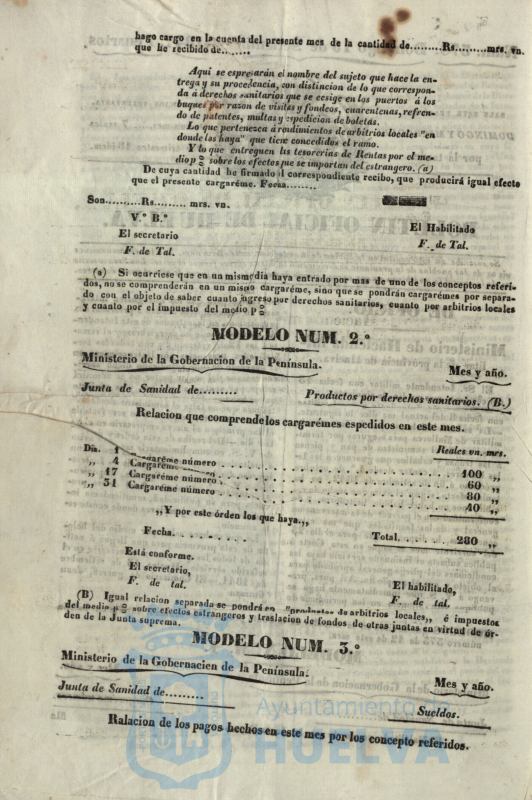 hago cargo en la cuenta del presente mes de la cantidad de.........Rs.........mrs. vn.
que he recibido de........
Aqui se espresarán el nombre del sujeto que hace la en-
trega y su procedencia, con distincion de lo que correspon-
da á derechos sanitarios que se ecsige en los puertos á los
buques por razon de visitas y fondeos, cuarentenas, refren-
do de patentes, multas y espedicion de boletas.
Lo que pertenezca á rendimientos de arbitrios locales "en
donde las haya" que tien concedidos el ramo.
Y lo que entreguen las tesorerias de Rentas por el me-
dio p% sobre los efectos que se importan del estrangero. (a)
De cuya cantidad he firmado el correspondiente recibo, que producirá igual efecto
que el presente cargaréme. Fecha........
Son.........Rs......... mrs. vn.
V.° B.°
El secretario
F. de Tal.
El Habilitado
F. de Tal.
(a) Si ocurriese que en un mismo dia haya entrado por mas de uno de los conceptos referi-
dos, no se comprenderán en un mismo cargaréme, sino que se pondrán cargarémes por separa-
do con el objeto de saber cuanto ingreso por derechos sanitarios, cuanto por arbitrios locales
y cuanto por el impuesto del medio p%
MODELO NUM. 2.°
Ministerio de la Gobernacion de la Península.
Mes y año.
Junta de Sanidad de.........
Productos por derechos sanitarios. (B.)
Relacion que comprende los cargarémes espedidos en este mes.
Reales vn. mrs.
Dia. 1 Cargaréme número . . . . . . 100 „
„ 4 Cargaréme número . . . . . . 60 „
„ 17 Cargaréme número . . . . . . 80 „
„ 31 Cargaréme número . . . . . . 40 „
„Y por este órden los que haya.„
Fecha. . . . . . . .
Total. . . . . 280 „
Está conforme.
El secretario,
F. de tal.
El habilitado,
F. de tal.
(B) Igual relacion separada se pondrá en "productos de arbitrios locales„ é impuestos
del medio p% sobre efectos estrangeros y traslacion de fondos de otras juntas en virtud de ór-
den de la Junta suprema.
MODELO NUM. 3.°
Ministerio de la Gobernacien de la Península.
Mes y año.
Junta de Sanidad de.........
Sueldos.
Ralacion de los pagos hechos en este mes por los concepto referidos.
Ayuntamiento
HUELVA